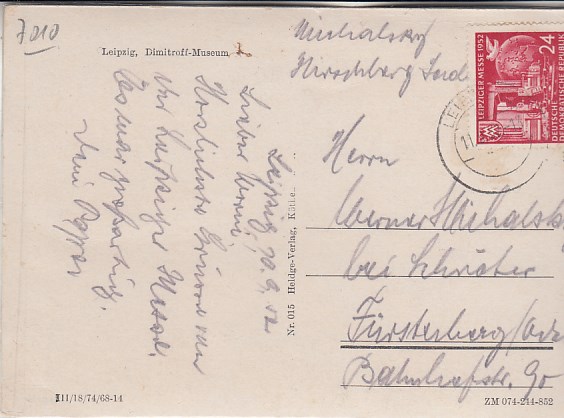 7010
Leipzig, Dimitroff-Museum
Leipzig, 10.9.52
Lieber Werner
Herzlichste Grüsse von
der Leipziger Messe.
Es war großartig.
Dein Pappi
Nr. 015 Heldge-Verlag, Köthe
III/18/74/68-14
Michalsky
Hirschberg
LEIPZIGER MESSE 1952
24
DEUTSCHE
DEMOKRATISCHE REPUBLIK
LEIP
11
Herrn
Werner Michalsky
bei Schröter
Fürstenberg/Oder
Bahnhofstr. 90
ZM 074-214-852